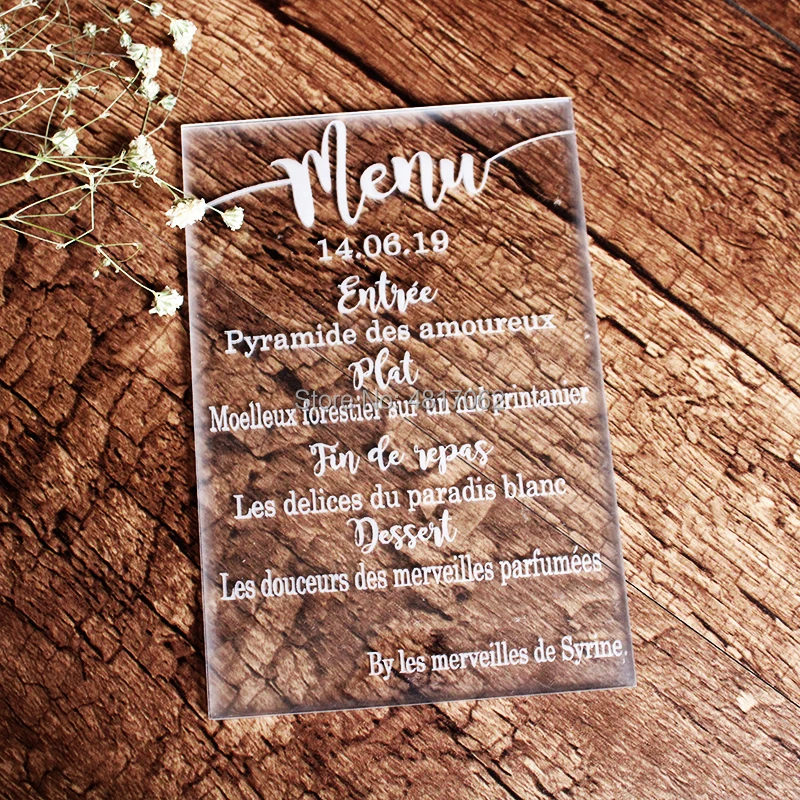 Menu
14.06.19
Entrée
Pyramide des amoureux
Plat
Moelleux forestier sur un nid printanier
Fin de repas
Les delices du paradis blanc
Dessert
Les douceurs des merveilles parfumées
By les merveilles de Syrine.
Store No.